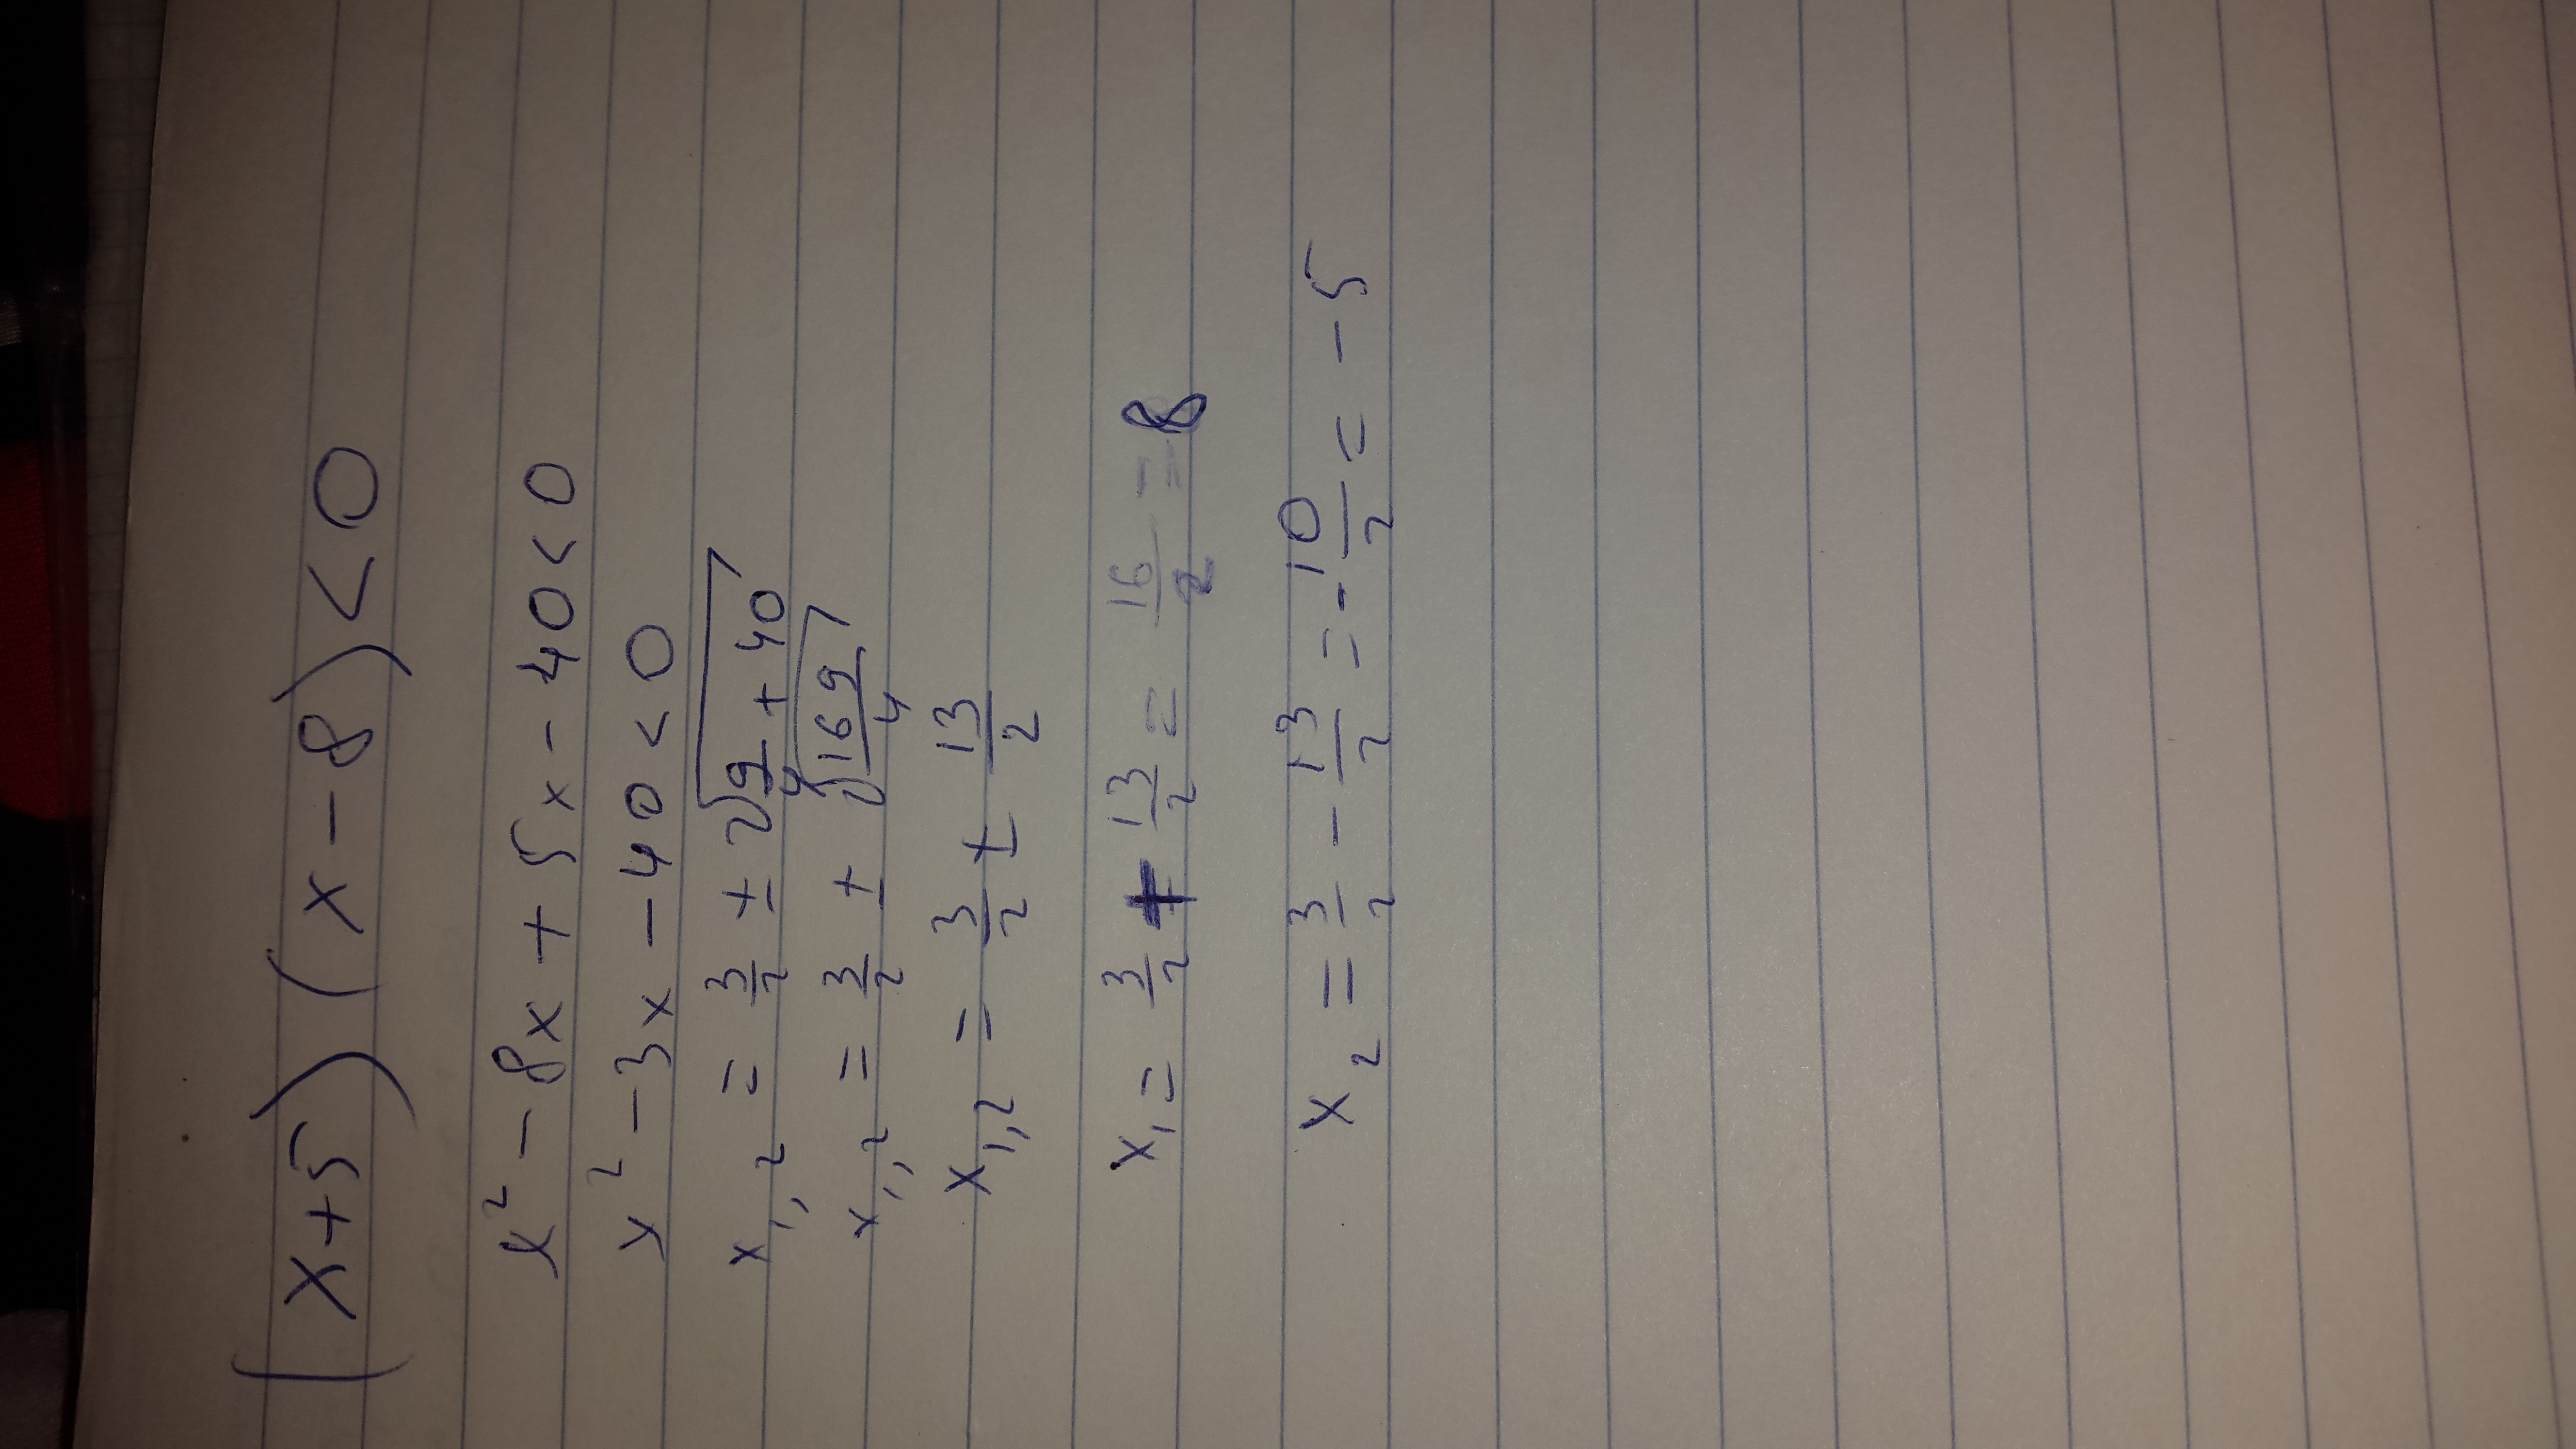 (x+5)(x-8)<0
x²-8x+5x-40<0
x²-3x-40<0
x₁,₂ = 3/2 ± √(9/4 + 40)
x₁,₂ = 3/2 ± √(169/4)
x₁,₂ = 3/2 ± 13/2
x₁ = 3/2 + 13/2 = 16/2 = 8
x₂ = 3/2 - 13/2 = -10/2 = -5